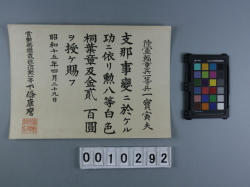 陸軍輜重兵一等兵一寶寅夫
支那事變ニ於ケル
功ニ依リ勲八等白色
桐葉章及金貳百圓
ヲ授ケ賜フ
昭和十五年四月二十九日
賞勲局總裁従四位勲二等下條康麿
0010292